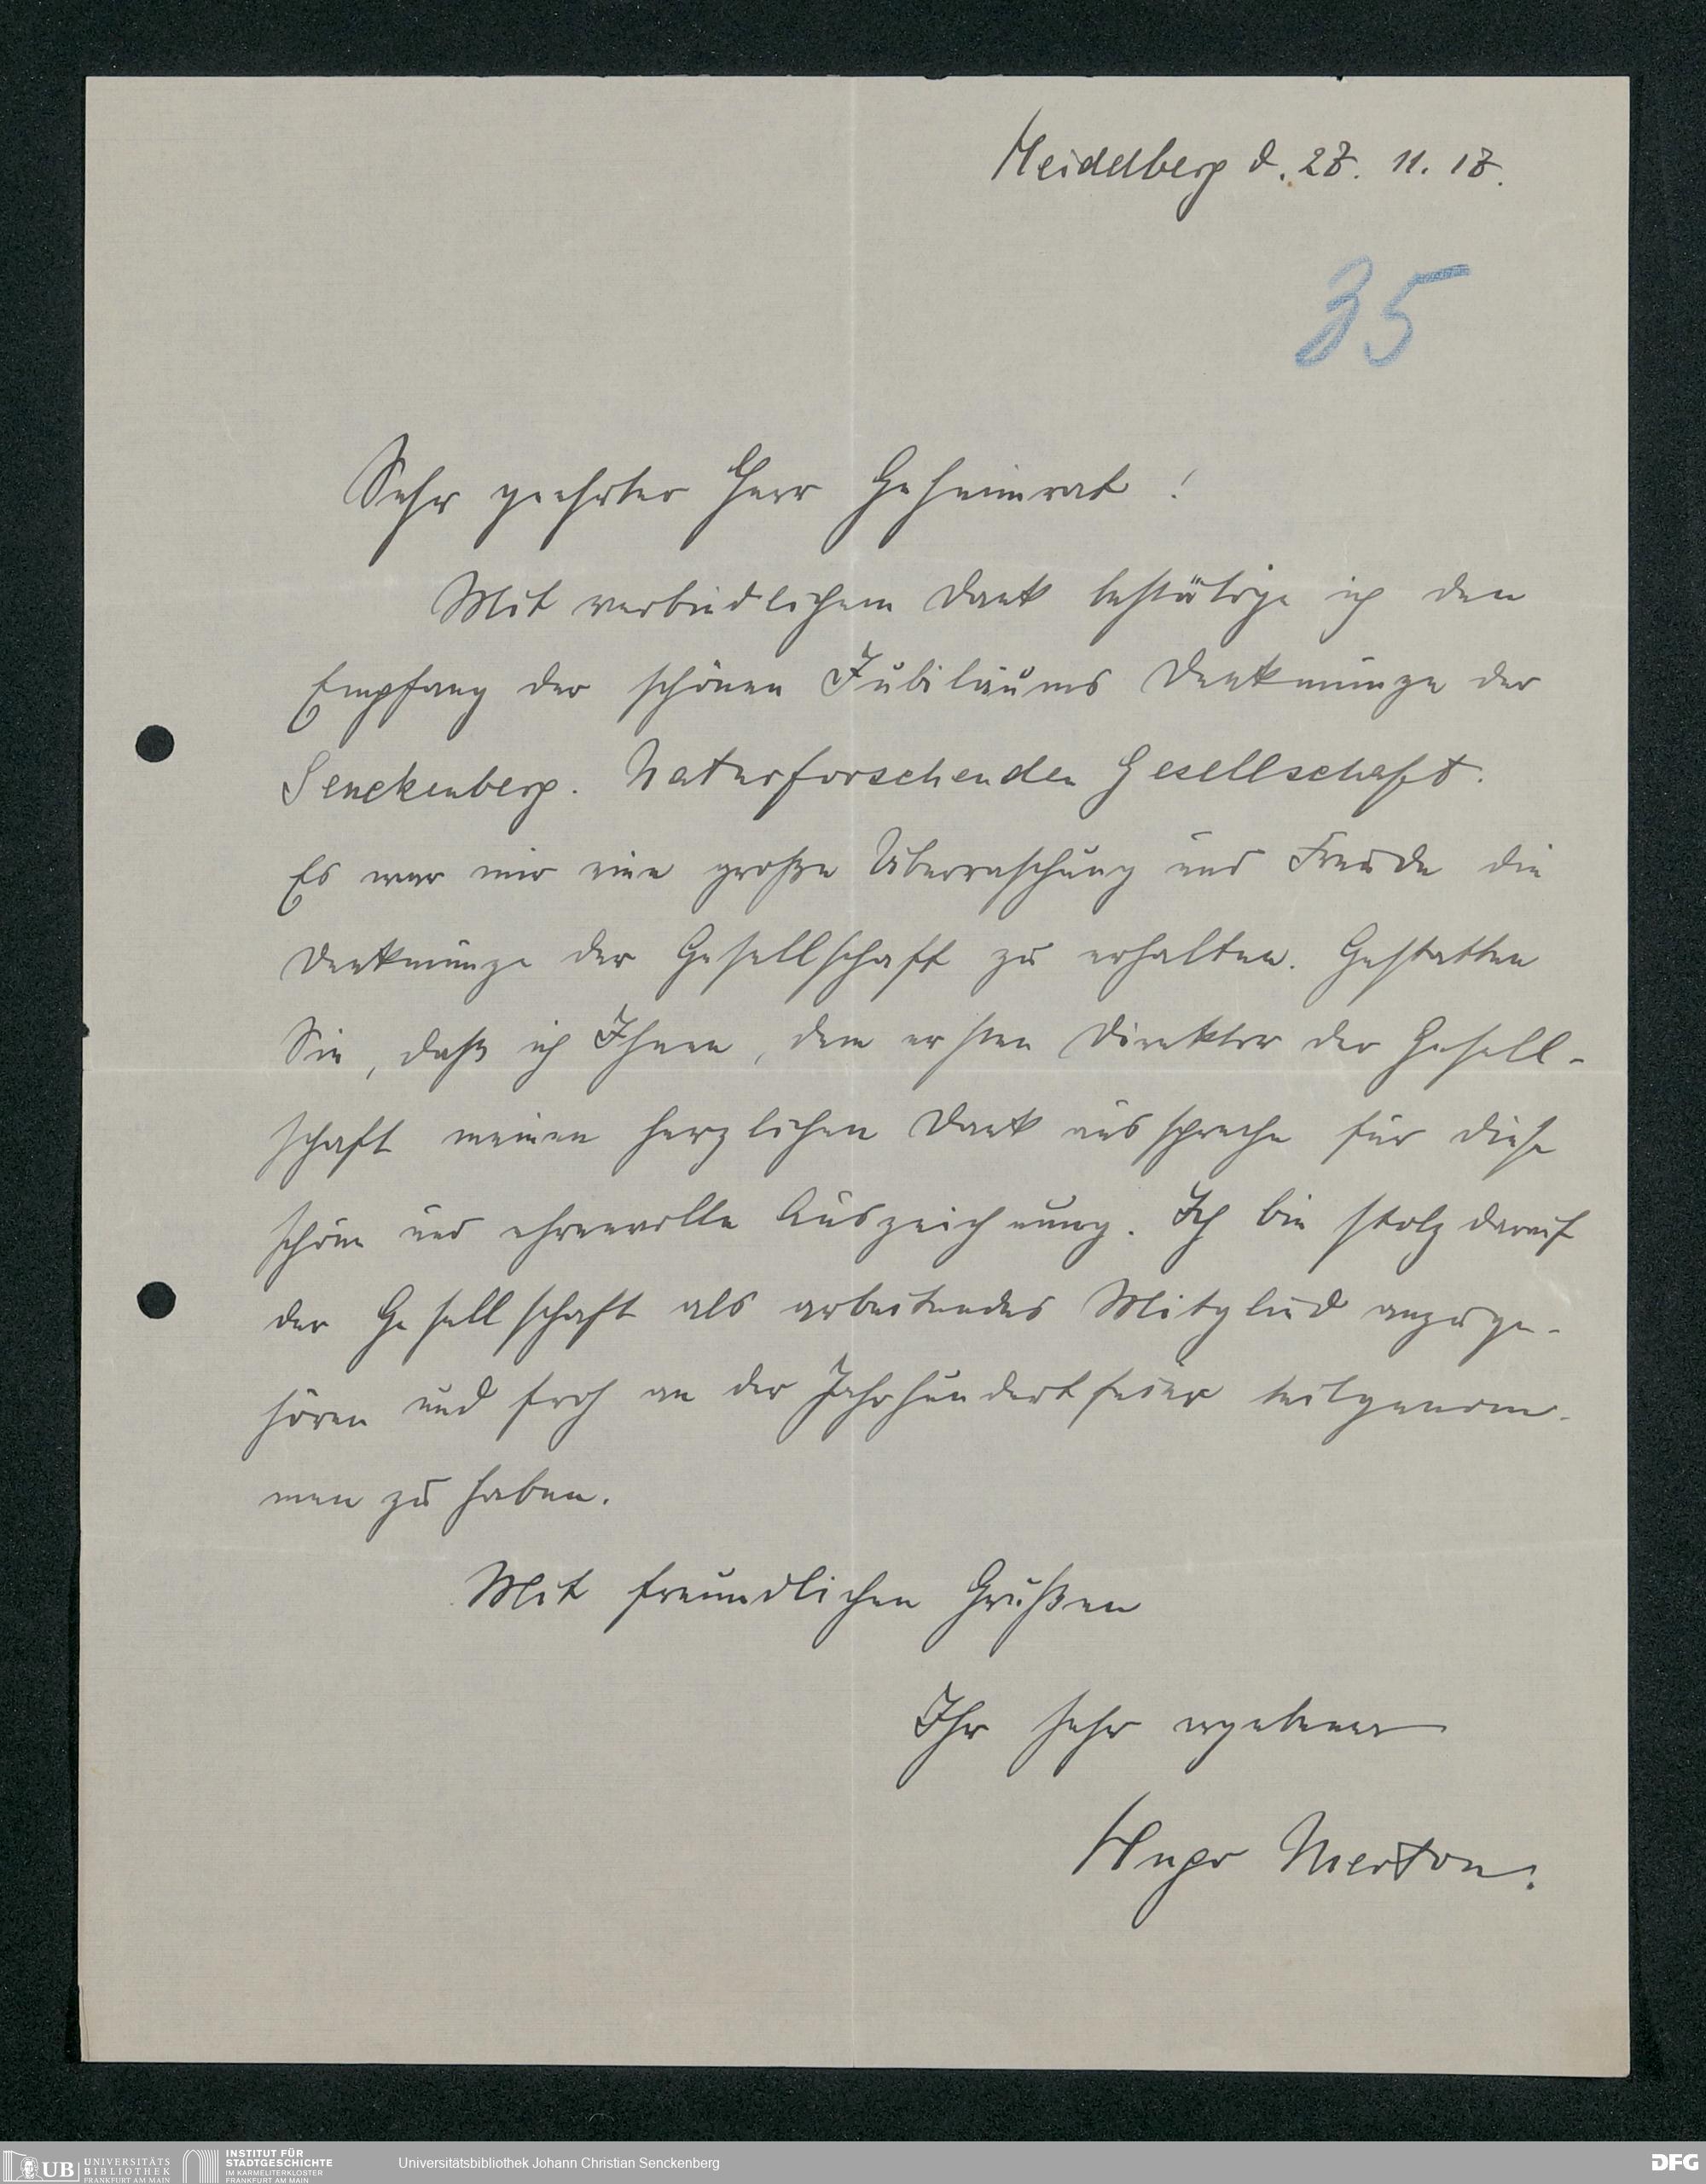 Heidelberg d. 28. 11. 18.
35
Sehr geehrter Herr Geheimrat!
Mit verbindlichem Dank bestätige ich den
Empfang der schönen Jubiläums Denkmünze der
Senckenberg. Naturforschenden Gesellschaft.
Es war mir eine große Überraschung und Freude die
Denkmünze der Gesellschaft zu erhalten. Gestatten
Sie, daß ich Ihnen, dem ersten Direktor der Gesell-
schaft meinen herzlichen Dank ausspreche für diese
schöne und ehrenvolle Auszeichnung. Ich bin stolz darauf
der Gesellschaft als arbeitendes Mitglied anzuge-
hören und froh an der Jahrhundertfeier teilgenom-
men zu haben.
Mit freundlichen Grüßen
Ihr sehr ergebener
Hugo Merton.
UB UNIVERSITÄTS
BIBLIOTHEK
FRANKFURT AM MAIN
INSTITUT FÜR
STADTGESCHICHTE
IM KARMELITERKLOSTER
FRANKFURT AM MAIN
Universitätsbibliothek Johann Christian Senckenberg
DFG